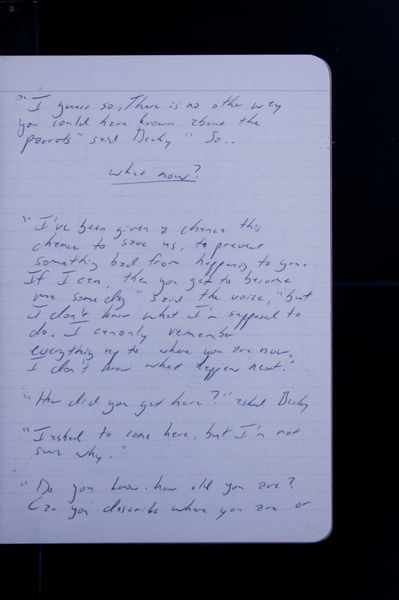 "I guess so, There is no other way
you could have known about the
parrots" said Becky "So..
what now?
"I've been given a chance this
chance to save us, to prevent
something bad from happening to you.
If I can, then you get to become
me some day" said the voice, "but
I don't know what I'm supposed to
do. I can only remember
everything up to where you are now.
I don't know what happens next."
"How did you get here?" asked Becky
"I asked to come here, but I'm not
sure why."
"Do you know how old you are?
Can you describe where you are or